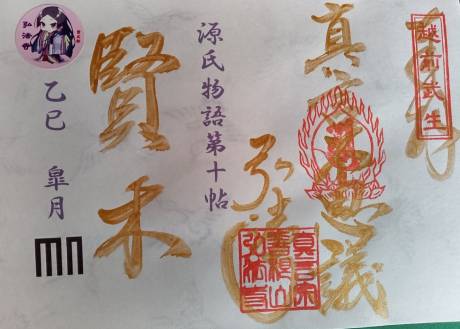 奉拝
越前武生
真言不思議
弘法寺
真言宗
善根山
弘法寺
源氏物語第十帖
賢木
弘法寺
乙巳 皐月